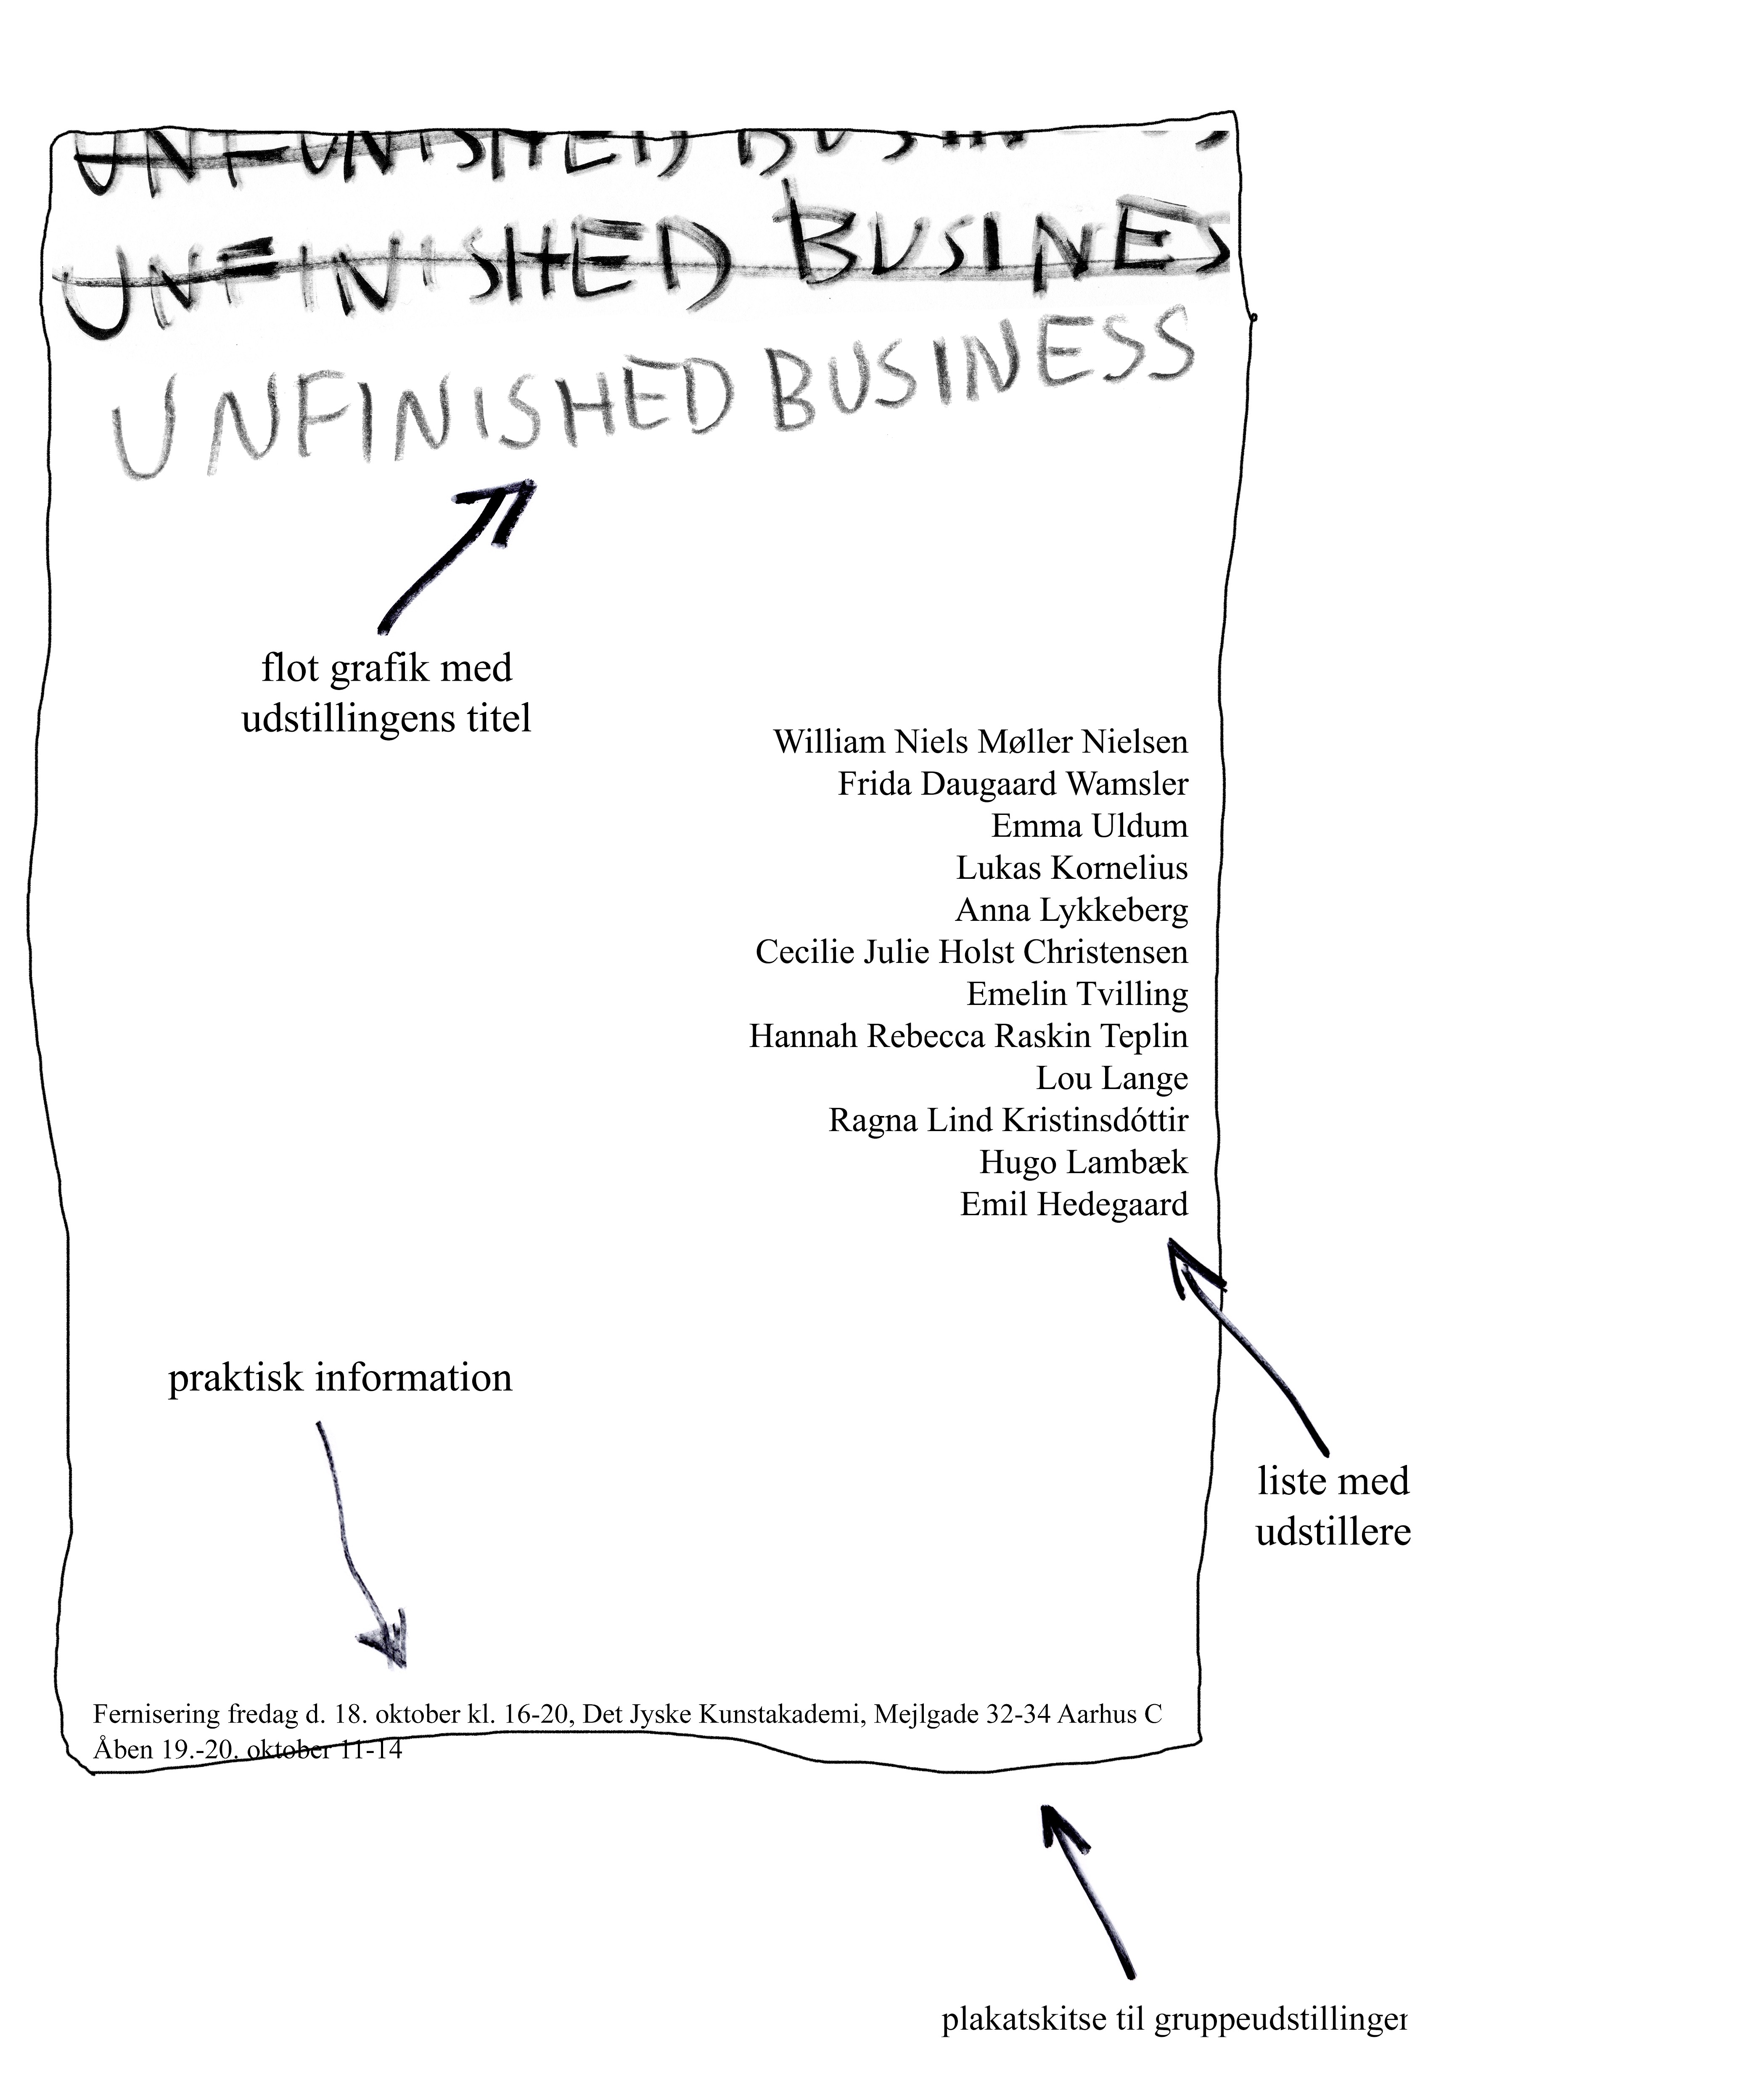 UNFUNISHED BUSIN
UNFINISHED BUSINES
UNFINISHED BUSINESS
flot grafik med
udstillingens titel
William Niels Møller Nielsen
Frida Daugaard Wamsler
Emma Uldum
Lukas Kornelius
Anna Lykkeberg
Cecilie Julie Holst Christensen
Emelin Tvilling
Hannah Rebecca Raskin Teplin
Lou Lange
Ragna Lind Kristinsdóttir
Hugo Lambæk
Emil Hedegaard
praktisk information
liste med
udstillere
Fernisering fredag d. 18. oktober kl. 16-20, Det Jyske Kunstakademi, Mejlgade 32-34 Aarhus C
Åben 19.-20. oktober 11-14
plakatskitse til gruppeudstillingen